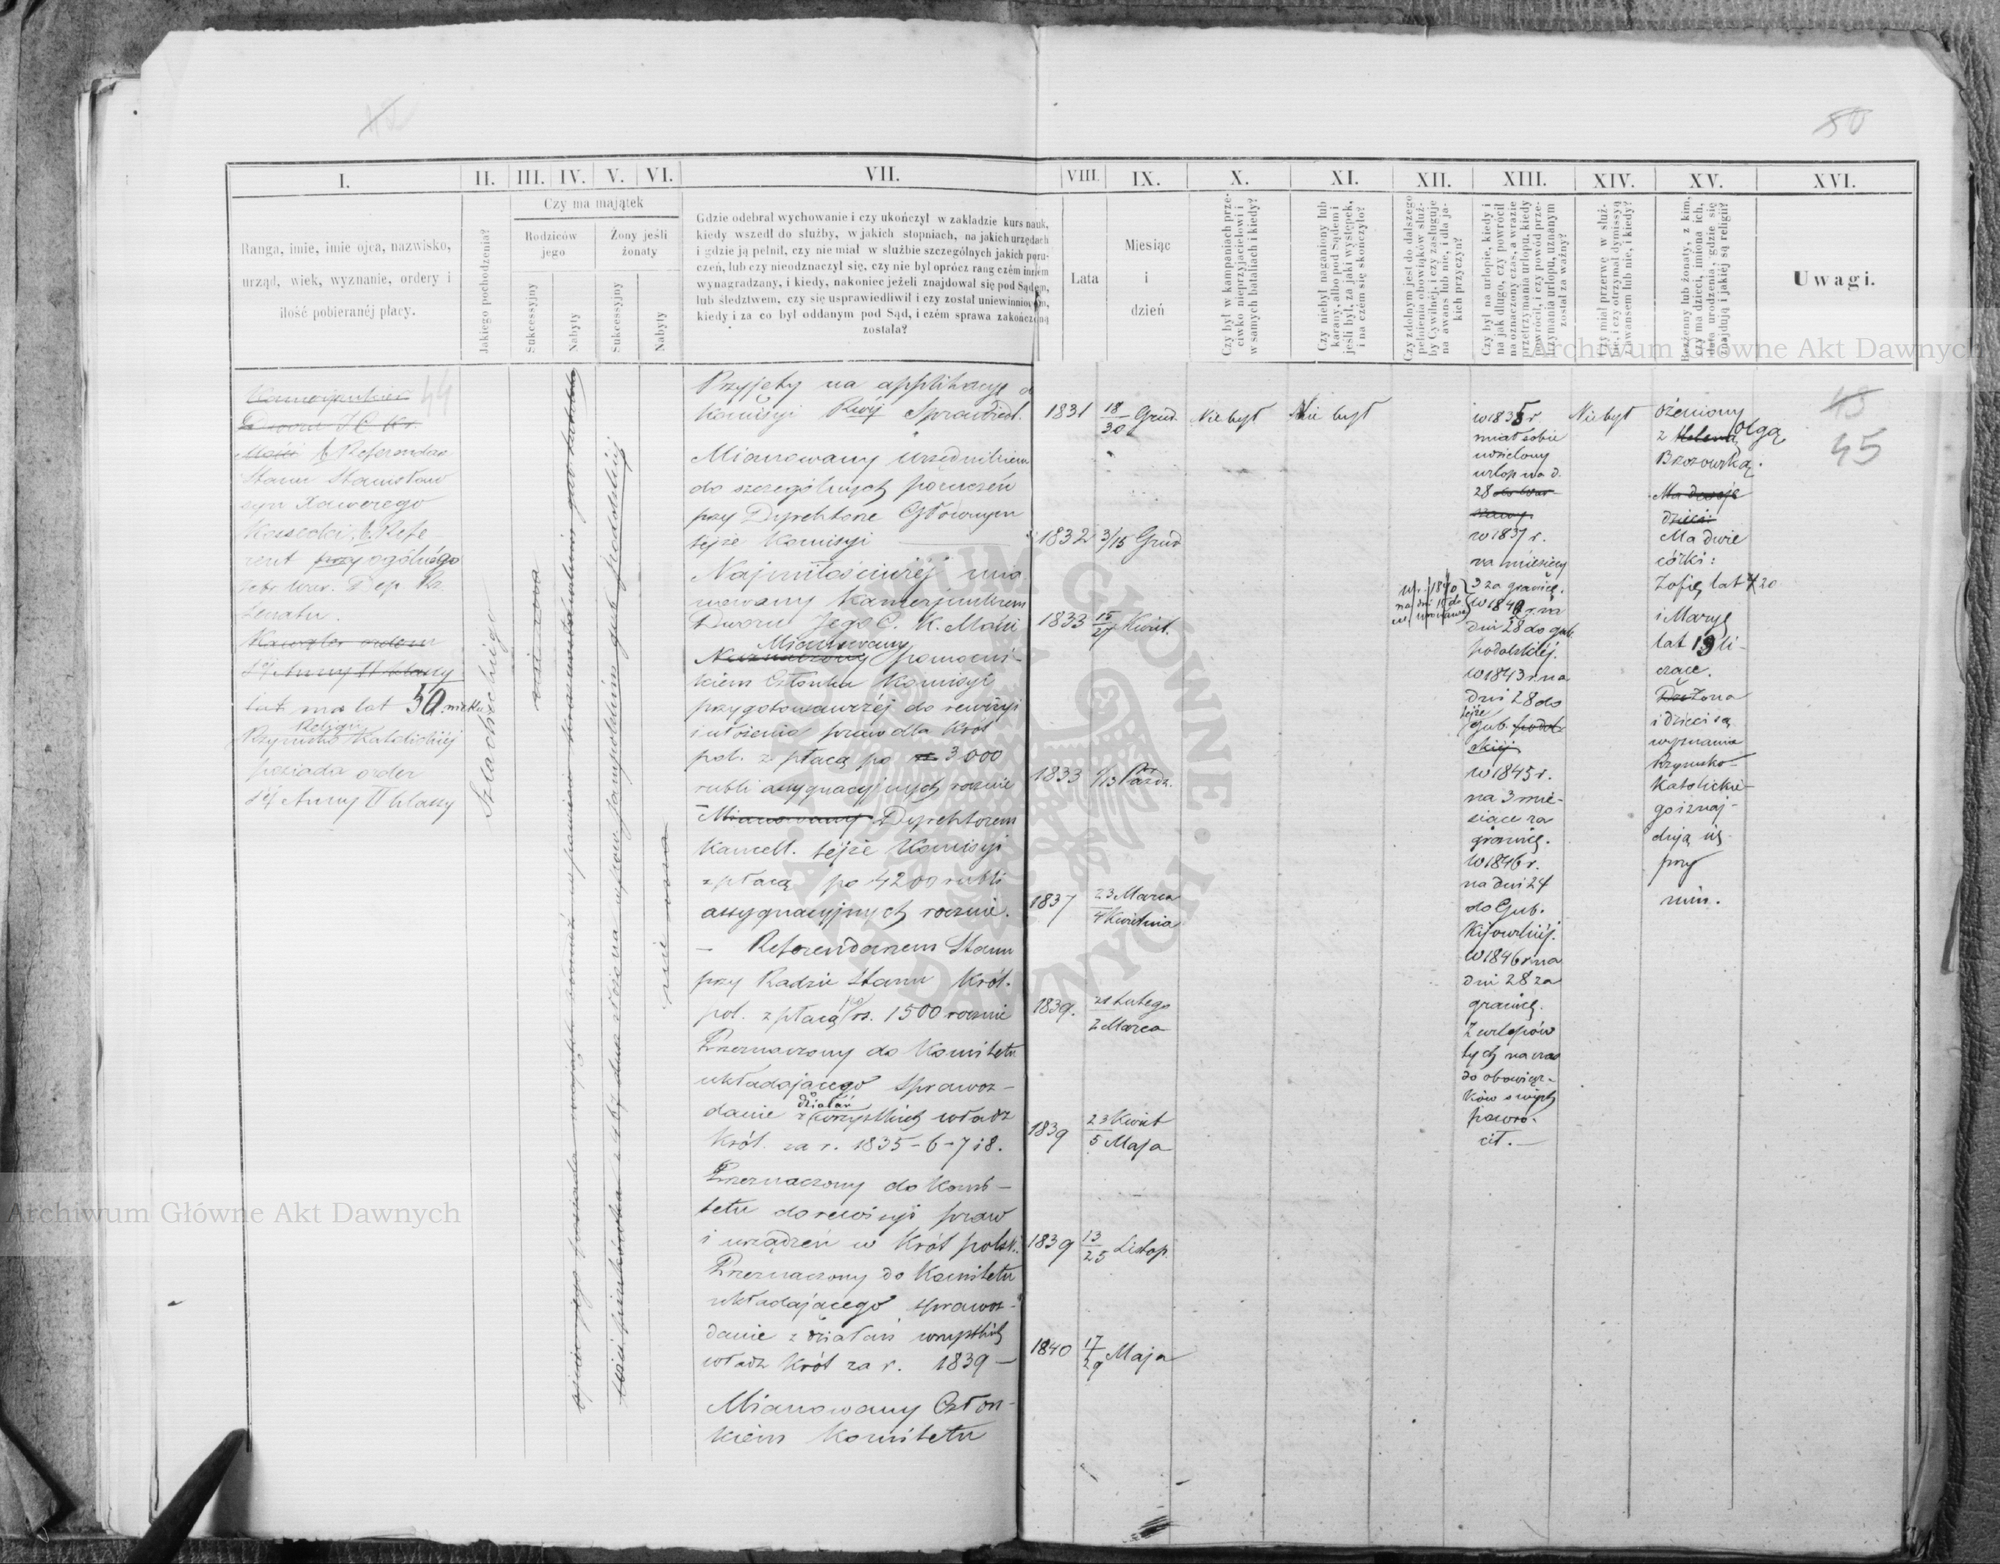 42
50
I.
II.
III.
IV.
V.
VI.
VII.
VIII.
IX.
X.
XI.
XII.
XIII.
XIV.
XV.
XVI.
Ranga, imie, imie ojca, nazwisko,
urząd, wiek, wyznanie, ordery i
ilość pobieranéj płacy.
Jakiego pochodzenia?
Czy ma majątek
Rodziców
jego
Żony jeśli
żonaty
Sukcessyjny
Nabyty
Sukcessyjny
Nabyty
Gdzie odebrał wychowanie i czy ukończył w zakładzie kurs nauk,
kiedy wszedł do służby, w jakich stopniach, na jakich urzędach
i gdzie ją pełnił, czy nie miał w służbie szczególnych jakich poru-
czeń, lub czy nieodznaczył się, czy nie był oprócz rang czém inném
wynagradzany, i kiedy, nakoniec jeżeli znajdował się pod Sądem,
lub śledztwem, czy się usprawiedliwił i czy został uniewinniowym,
kiedy i za co był oddanym pod Sąd, i czém sprawa zakończoną
została?
Lata
Miesiąc
i
dzień
Czy był w kampaniach prze-
ciwko nieprzyjacielowi i
w samych bataliach i kiedy?
Czy niebył naganiony lub
karany, albo pod Sądem i
jeśli był, za jaki występek,
i na czém się skończyło?
Czy zdolnym jest do dalszego
pełnienia obowiązków służ-
by Cywilnéj, i czy zasługuje
na awans lub nie, i dla ja-
kich przyczyn?
Czy był na urlopie, kiedy i
na jak długo, czy powrócił
na oznaczony czas, a w razie
przetrzymania urlopu, kiedy
powrócił, i czy powód prze-
trzymania urlopu, uznanym
został za ważny?
Czy miał przerwę w służ-
bie, i czy otrzymał dymissyą
z awansem lub nie, i kiedy?
Bezżenny lub żonaty, z kim,
czy ma dzieci, imiona ich,
data urodzenia, gdzie się
znajdują i jakiéj są religii?
Uwagi.
Kamerjunkier 44
Dworu J C Kr.
Mości Referendarz
Stanu Stanisław
syn Xawerego
Refe-
rent przy ogólnégo
Senatu.
Kawaler orderu
Sś Anny II klassy
lat ma lat 50
Religii
Rzymsko Katolickiéj
posiada order
Sś Anny II klassy
Szlacheckiego
nie ma
nie ma
Przyjęty na applikacyę do
Komisyi Rząj Sprawiedl.
Mianowany urzędnikiem
do szczególnych poruczeń
przy Dyrektorze Głównym
tejże Komisyi
Najmiłościwiéj mia
nowany Kamerjunkrem
Dworu Jego C. K. Mości
Mianowany
Naznaczony pomocni-
kiem Członka Komisyi
przygotowawczéj do rewizyi
i ułożenia praw dla Król
pol. z płacą po 3,000
rubli assygnacyjnych rocznie
Mianowany Dyrektorem
Kancell. tejże Komisyi
z płacą po 4200 rubli
assygnacyjnych rocznie.
– Referendarzem Stanu
przy Radzie Stanu Król.
pol. z płacą po rs. 1500 rocznie
Przeznaczony do Komitetu
układającego sprawoz-
działań
danie z wszystkich władz
Król. za r. 1835-6-7 i 8.
Przeznaczony do Komi-
tetu do rewizyi praw
i urządzeń w Król polsk.
Przeznaczony do Komitetu
układającego sprawoz-
danie z działań wszystkich
władz Król za r. 1839 –
Mianowany Człon-
kiem Komitetu
1831 18/30 Grud.
1832 3/15 Grud
1833 15/27 Kwiet.
1833 1/13 Paźdz.
1837 23 Marca
4 Kwietnia
1839. 21 Lutego
2 Marca
1839 23 Kwiet
5 Maja
1839 13/25 Listop.
1840 17/29 Maja
Nie był
Nie był
w 1835 r.
miał sobie
udzielony
urlop na d.
28 do War-
szawy
w 1837 r.
na miesięcy
3 za granicę.
w 1840 r. na
dni 28 do gub.
podolskiéj.
w 1843 r. na
dni 28 do
tejże
Gub. podol
skiéj
w 1845 r.
na 3 mie-
siące za
granicę.
w 1846 r.
na dni 24
do Gub.
Kijowskiéj.
w 1846 r. na
dni 28 za
granicę.
Z urlopów
tych na czas
do obowiąz-
ków swych
powró-
cił. —
Nie był
ożeniony
z Heleną Olgą
Brzozowską.
Ma dwoje
dzieci
Ma dwie
córki:
Zofię lat 20
i Maryę
lat 19 li-
czące.
Żona
i dzieci są
wyznania
Rzymsko-
Katolickie-
go i znaj-
dują się
przy
nim.
43
45
Archiwum Główne Akt Dawnych
Archiwum Główne Akt Dawnych
ARCHIWUM GŁÓWNE AKT DAWNYCH